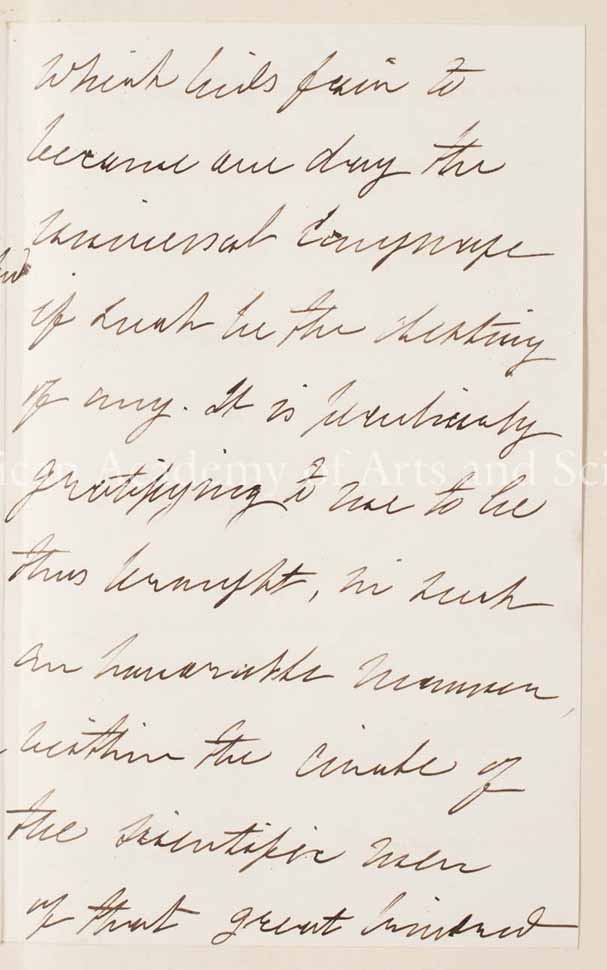 which bids fair to
become one day the
universal language
if such be the destiny
of any. It is peculiarly
gratifying to me to be
thus brought, in such
an honorable manner,
within the circle of
the scientific men
of that great kindred
ican Academy of Arts and Sci